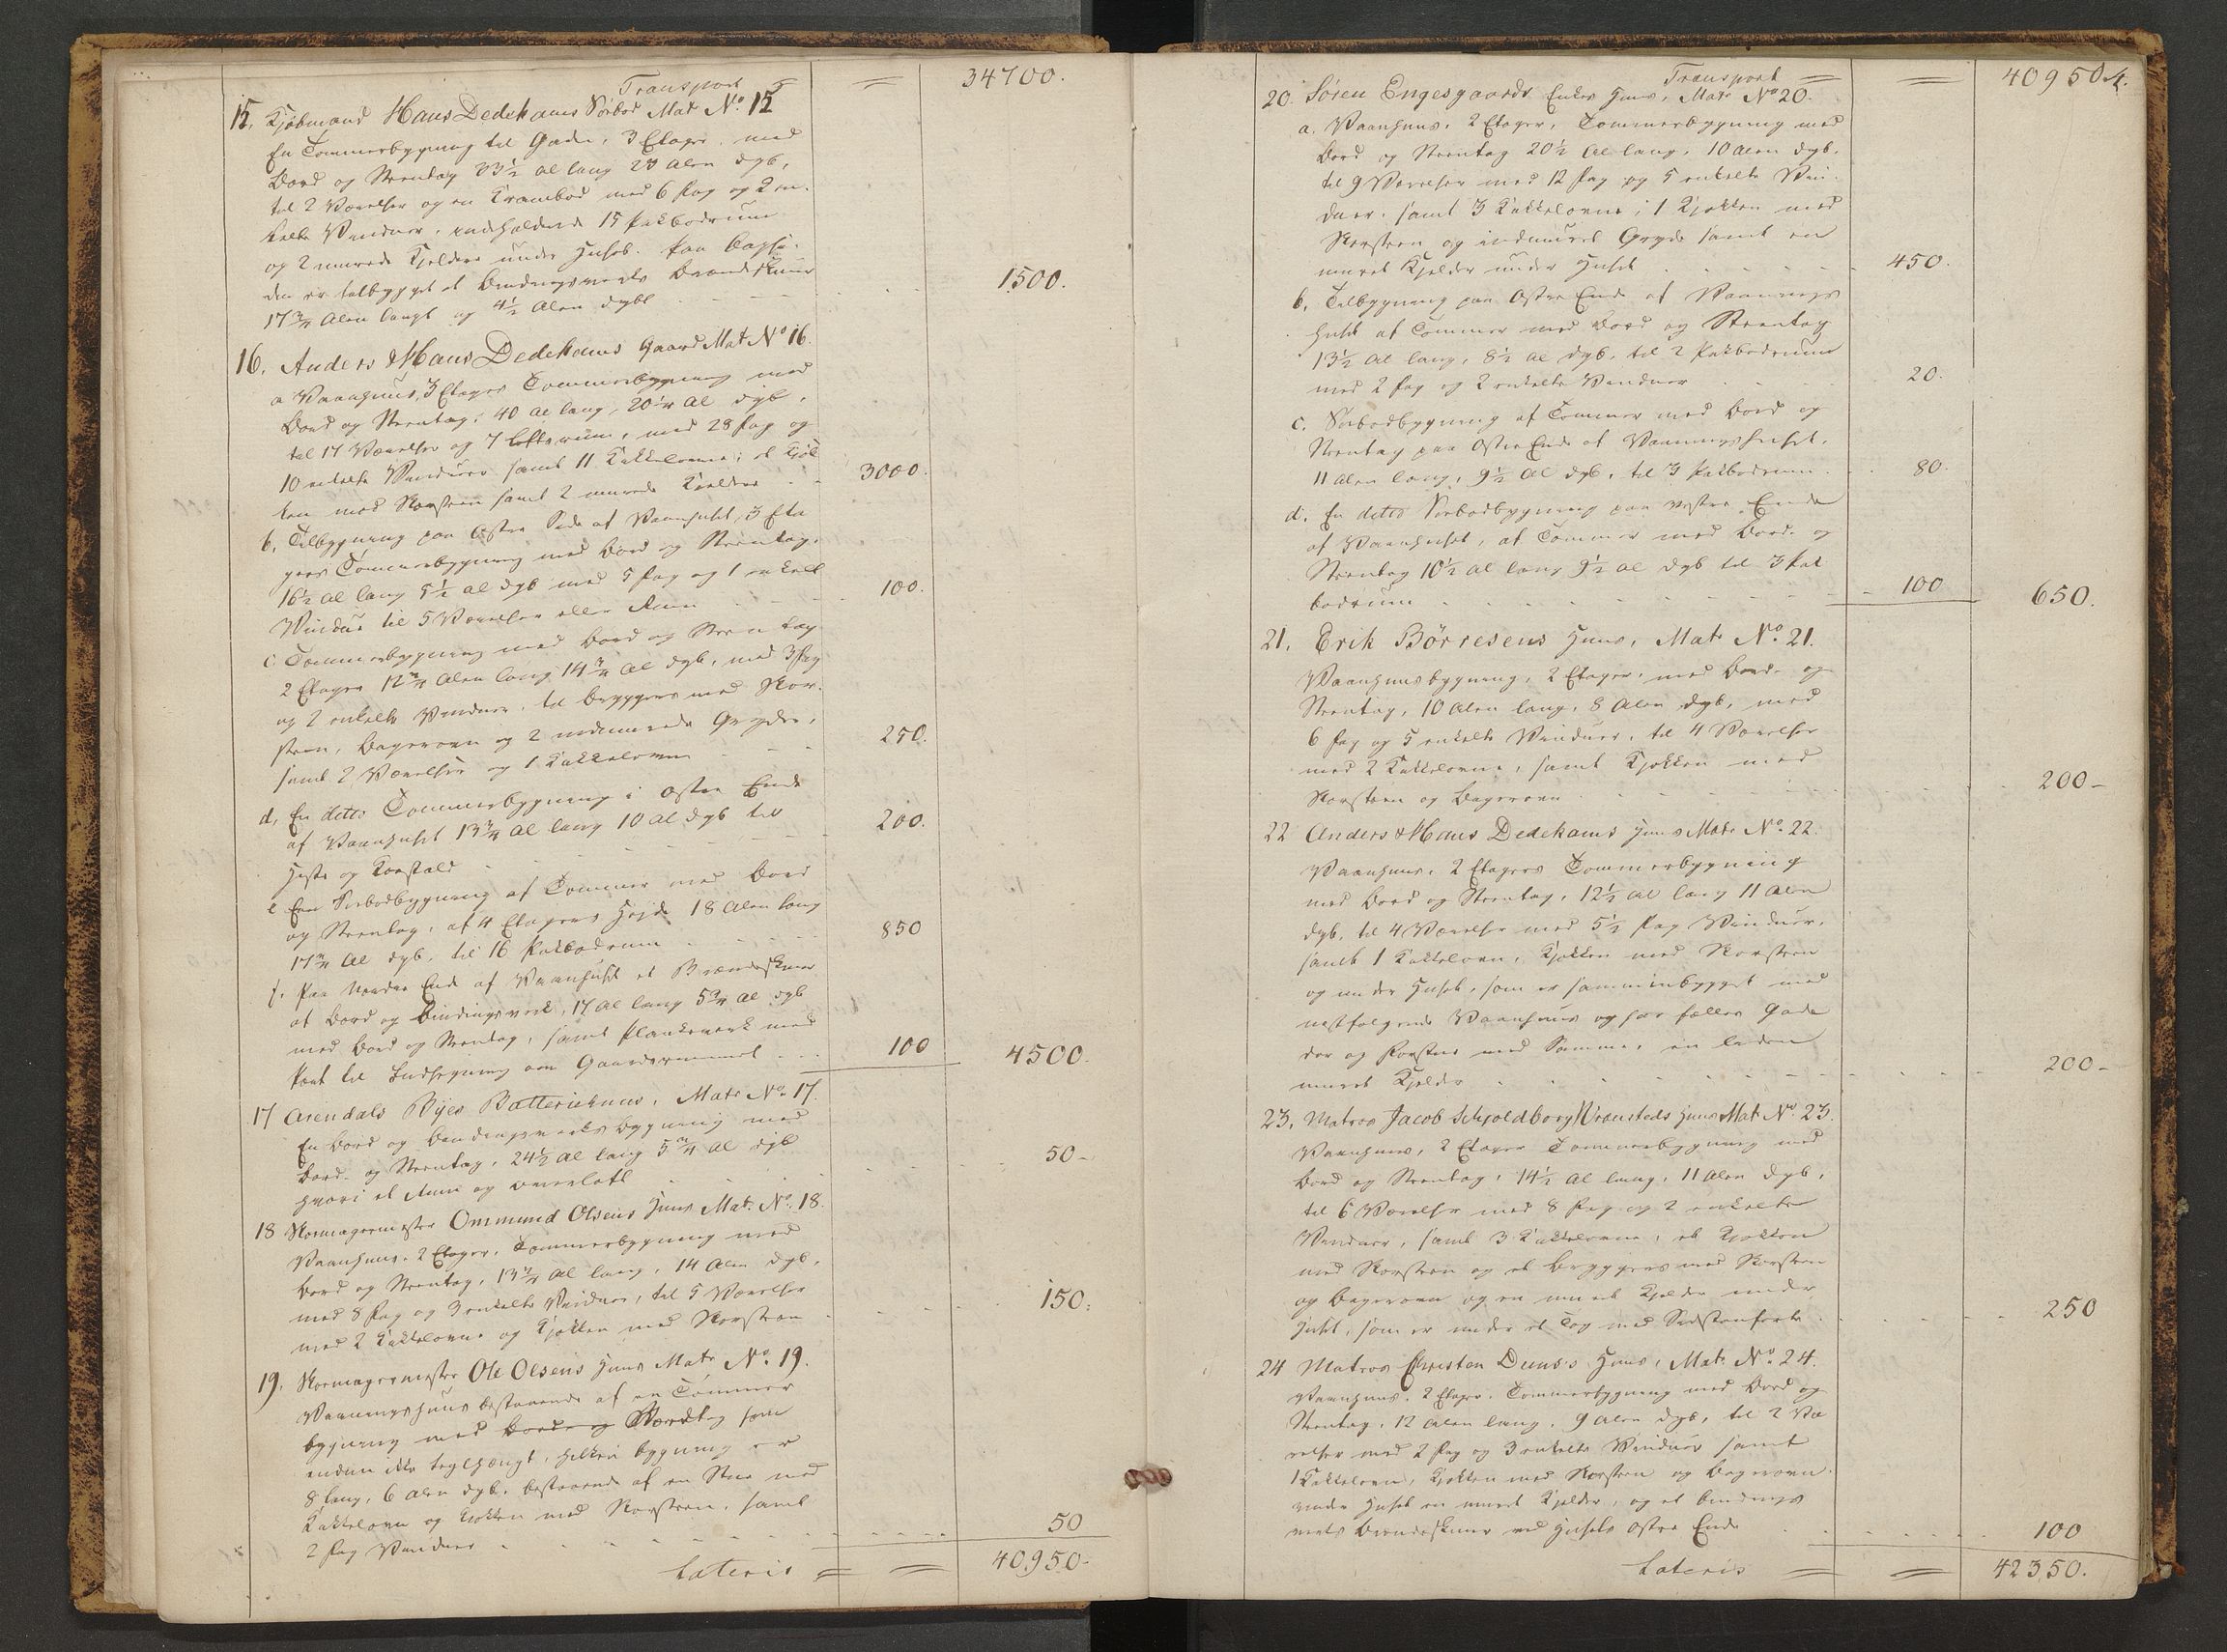 Transport = 34700.
15. Kjøbmand Hans Dedekams Søebod Mat No. 15
En Tømmerbygning til Gaden, 3 Etager med
Bord og Steentag 33½ al lang 20 Alen dyb,
til 2 Værelser og en Krambod med 6 Fag og 2 en-
kelte Vinduer, indholdende 15 Pakboderum
og 2 murede Kjeldere under Huset. Paa Bagsi-
den er tilbygget et Bindingsværks Brændeskuur
17¾ Alen langt og 4½ Alen dybt 1500.
16. Anders & Hans Dedekams Gaard Mat No 16.
a Vaanhuus, 3 Etages Tømmerbygning med
Bord og Steentag, 40 al lang, 20¼ al dyb,
til 17 Værelser og 7 Loftsrum, med 28 Fag og
10 enkelte Vinduer samt 11 Kakkelovne; et Kjøk-
ken med Skorsteen samt 2 murede Kjeldere 3000.
b. Tilbygning paa Østre Side af Vaanhuset, 3 Eta
gers Tømmerbygning med Bord og Steentag,
16½ al lang 5½ al dyb med 5 Fag og 1 enkelt
Vindue til 5 Værelser eller Rum 100.
c. Tømmerbygning med Bord og Steentag
2 Etager 12¾ Alen lang 14¾ al dyb, med 3 Fag
og 2 enkelte Vinduer, til Bryggers med Skor-
steen, Bagerovn og 2 indmurede Gryder,
samt 2 Værelser og 1 Kakkelovn 250.
d. En ditto Tømmerbygning i Østre Ende
af Vaanhuset 13¾ al lang 10 al dyb til
Heste og Koestald 200.
e En Søebodbygning af Tømmer med Bord
og Steentag, af 4 Etagers Højde 18 Alen lang
17¾ al dyb, til 16 Pakboderum 850
f. Paa Nordre Ende af Vaanhuset et Brændeskuur
af Bord og Bindingsværk, 17 al lang 5¾ al dyb
med Bord og Steentag, samt Plankeværk med
Port til Indhegning om Gaardsrummet 100 4500.
17 Arendals Byes Batteriehuus, Matr No. 17.
En Bord og Bindingsværks bygning med
Bord- og Steentag, 24½ al lang 5¾ al dyb
hvori et Rum og Overloft 50-
18 Skomagermester Ommund Olsens Huus Mat. No. 18.
Vaanhuus. 2 Etager, Tømmerbygning med
Bord og Steentag, 13¾ al lang, 14 Alen dyb,
med 8 Fag og 3 enkelte Vinduer, til 5 Værelser
med 2 Kakkelovne og Kjøkken med Skorsteen 150.
19. Skomagermester Ole Olsens Huus Matr No. 19.
Vaaningshuus bestaaende af en Tømmer
bygning med Bord og Bordtag som
endnu ikke teglhængt, hvilken bygning er
8 lang, 6 Alen dyb, bestaaende af en Stue med
Kakkelovn og Kjøkken med Skorsteen, samt
2 Fag Vinduer 50
Lateris = = 40950-
Transport = = 40950
20. Søren Engesgaards Enkes Huus, Matr No 20.
a. Vaanhuus, 2 Etager, Tømmerbygning med
Bord og Steentag 20½ al lang, 10 Alen dyb,
til 9 Værelser med 12 Fag og 5 enkelte Vin-
duer, samt 3 Kakkelovne; 1 Kjøkken med
Skorsteen og indmuret Gryde samt en
muret Kjelder under Huset 450.
b. Tilbygning paa Østre Ende af Vaanings
huset af Tømmer med Bord og Steentag
13½ al lang, 8½ al dyb, til 2 Pakboderum
med 2 Fag og 2 enkelte Vinduer 20.
c. Søebodbygning af Tømmer med Bord og
Steentag paa Østre Ende af Vaaningshuset,
11 Alen lang, 9½ al dyb, til 3 Pakboderum 80.
d. En ditto Søebodbygning paa vestre Ende
af Vaanhuset, af Tømmer med Bord- og
Steentag 10½ al lang 9½ al dyb til 3 Pak
boderum 100 650.
21. Erik Börresens Huus, Matr No. 21.
Vaanhuusbygning, 2 Etager, med Bord- og
Steentag, 10 Alen lang, 8 Alen dyb, med
6 Fag og 5 enkelte Vinduer, til 4 Værelser
med 2 Kakkelovne, samt Kjøkken med
Skorsteen og Bagerovn 200-
22 Anders & Hans Dedekams Huus Matr No. 22.
Vaanhuus, 2 Etagers Tømmerbygning
med Bord og Steentag, 12½ al lang 11 Alen
dyb, til 4 Værelser med 5½ Fag Vinduer,
samt 1 Kakkelovn, Kjøkken med Skorsteen
og under Huset, som er sammenbygget med
nestfølgende Vaanhuus og har fælles Gade
dør og Forstue med Samme, en liden
muret Kjelder 200-
23. Matros Jacob Schjoldborg Urensteds Huus Mat No. 23.
Vaanhuus, 2 Etager Tømmerbygning med
Bord og Steentag, 14½ al lang, 11 Alen dyb,
til 6 Værelser med 8 Fag og 2 enkelte
Vinduer, samt 3 Kakkelovne, et Kjøkken
med Skorsteen og et Bryggers med Skorsteen
og Bagerovn og en muret Kjelder under
Huset, som er under et Tag med Sidstanførte 250
24 Matros Christen Duus's Huus, Mat. No. 24.
Vaanhuus. 2 Etager. Tømmerbygning med Bord og
Steentag, 12 Alen lang, 9 Alen dyb, til 2 Væ
relser med 2 Fag og 3 enkelte Vinduer samt
1 Kakkelovn, Kjøkken med Skorsteen og Bagerovn.
under Huset en muret Kjelder, og et Bindings
værks Brændeskuur ved Husets østre Ende 100
Lateris = = 42350.